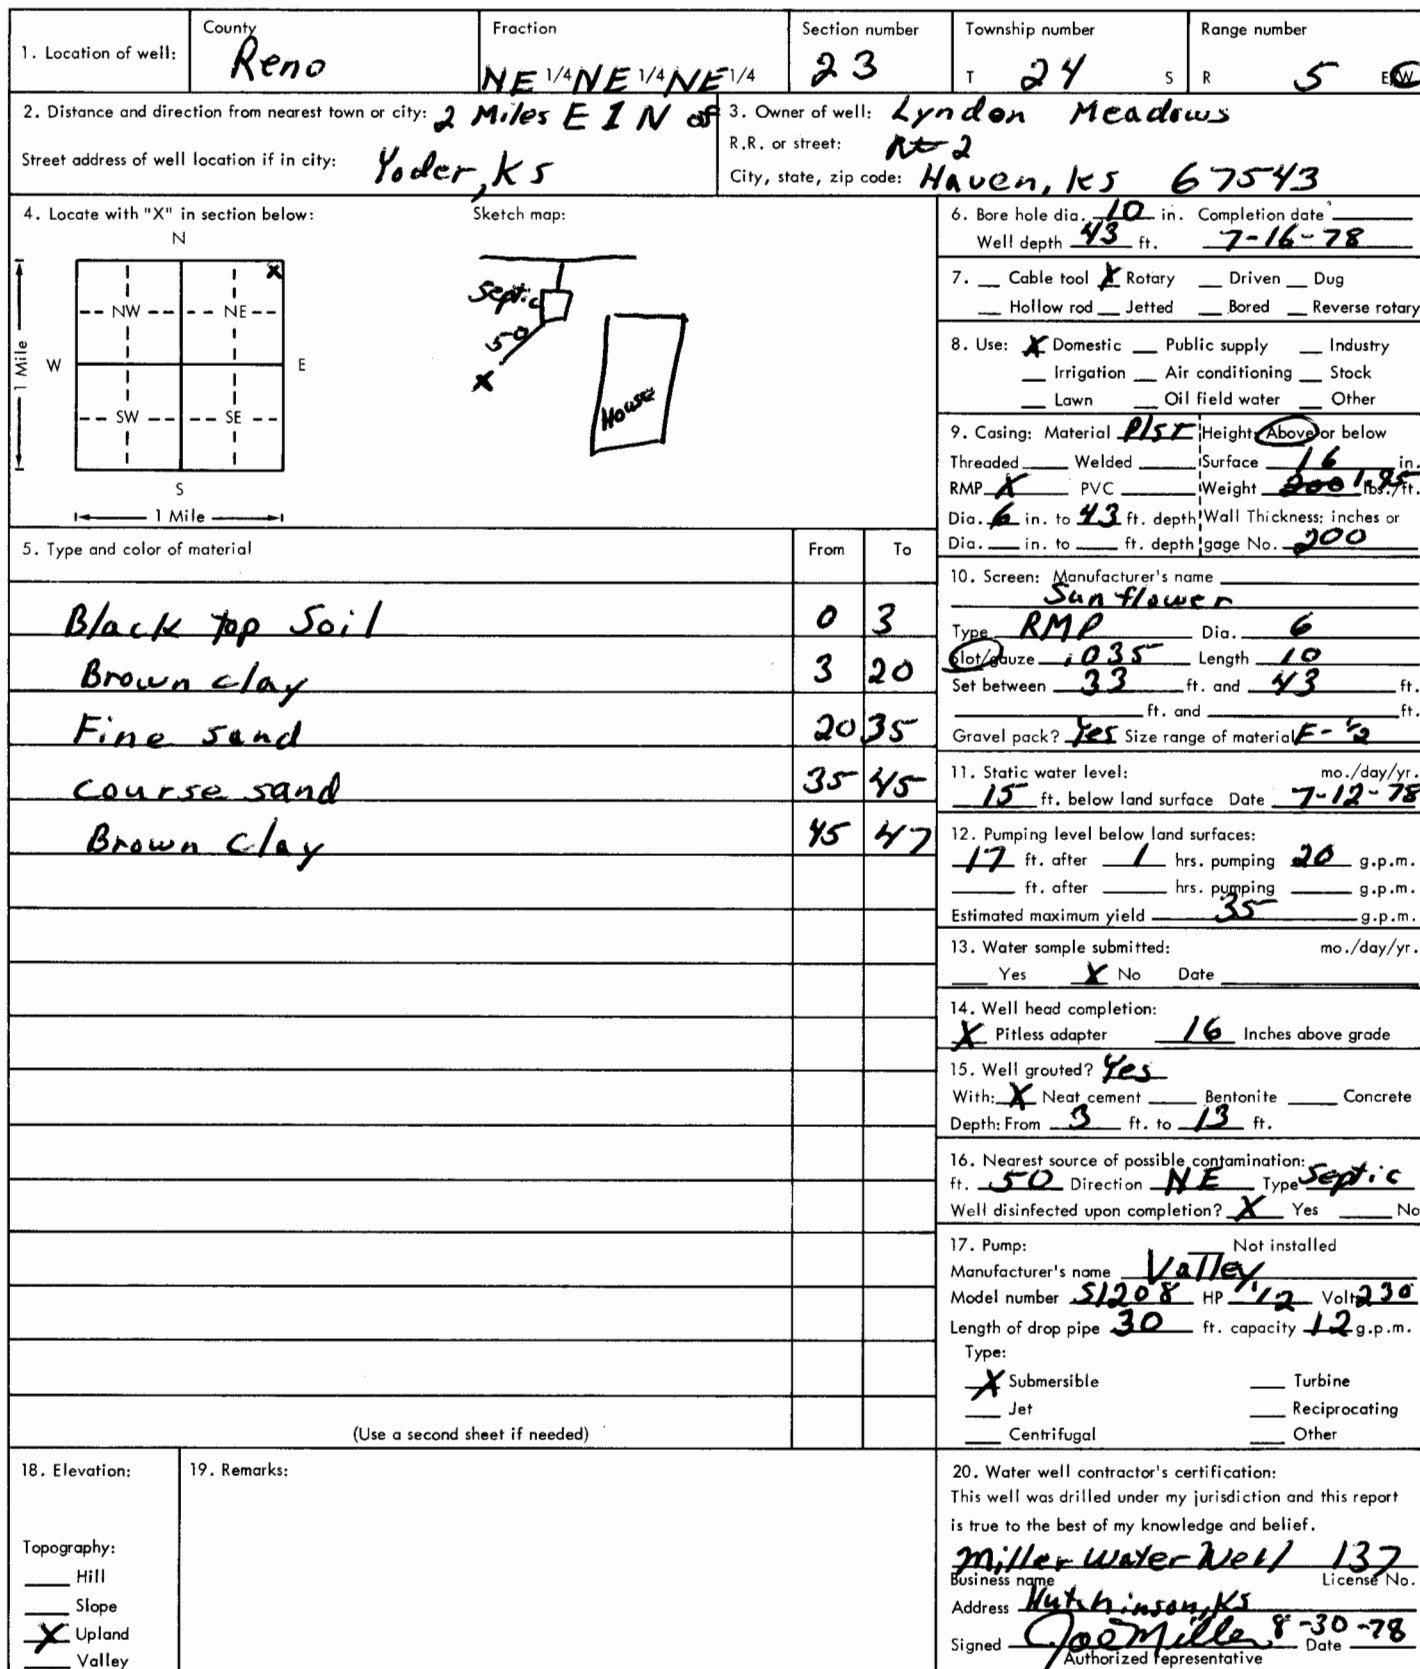 1. Location of well: County Reno Fraction NE 1/4 NE 1/4 NE 1/4 Section number 23 Township number T 24 S Range number R 5 E W
2. Distance and direction from nearest town or city: 2 Miles E 1 N of
Street address of well location if in city: Yoder, Ks
3. Owner of well: Lyndon Meadows
R.R. or street: Rt 2
City, state, zip code: Haven, Ks 67543
4. Locate with "X" in section below:
N
NW NE
W E
SW SE
S
1 Mile
1 Mile
X
Sketch map:
Septic
50
X
House
5. Type and color of material From To
Black top Soil 0 3
Brown clay 3 20
Fine sand 20 35
course sand 35 45
Brown Clay 45 47
(Use a second sheet if needed)
6. Bore hole dia. 10 in. Completion date
Well depth 43 ft. 7-16-78
7. Cable tool X Rotary Driven Dug
Hollow rod Jetted Bored Reverse rotary
8. Use: X Domestic Public supply Industry
Irrigation Air conditioning Stock
Lawn Oil field water Other
9. Casing: Material Plst Height: Above or below
Threaded Welded Surface 16 in.
RMP X PVC Weight 200 1.95 lbs./ft.
Dia. 6 in. to 43 ft. depth Wall Thickness: inches or
Dia. in. to ft. depth gage No. 200
10. Screen: Manufacturer's name
Sunflower
Type RMP Dia. 6
Slot/gauze .035 Length 10
Set between 33 ft. and 43 ft.
ft. and ft.
Gravel pack? Yes Size range of material F-1/2
11. Static water level: mo./day/yr.
15 ft. below land surface Date 7-12-78
12. Pumping level below land surfaces:
17 ft. after 1 hrs. pumping 20 g.p.m.
ft. after hrs. pumping g.p.m.
Estimated maximum yield 35 g.p.m.
13. Water sample submitted: mo./day/yr.
Yes X No Date
14. Well head completion:
X Pitless adapter 16 Inches above grade
15. Well grouted? Yes
With: X Neat cement Bentonite Concrete
Depth: From 3 ft. to 13 ft.
16. Nearest source of possible contamination:
ft. 50 Direction NE Type Septic
Well disinfected upon completion? X Yes No
17. Pump: Not installed
Manufacturer's name Valley
Model number S1208 HP 1/2 Volt 230
Length of drop pipe 30 ft. capacity 12 g.p.m.
Type:
X Submersible Turbine
Jet Reciprocating
Centrifugal Other
18. Elevation:
Topography:
Hill
Slope
X Upland
Valley
19. Remarks:
20. Water well contractor's certification:
This well was drilled under my jurisdiction and this report
is true to the best of my knowledge and belief.
Miller Water Well 137
Business name License No.
Address Hutchinson, Ks
Signed Joe Miller Date 8-30-78
Authorized representative